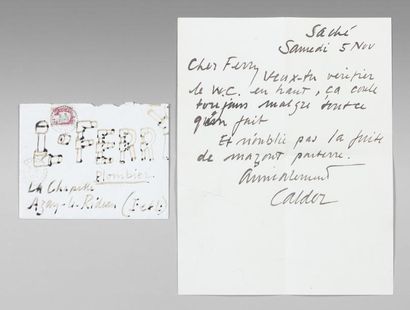 J. FERRY
Plombier
La Chapelle
Azay-le-Rideau (I et L)
Saché
Samedi 5 Nov
Cher Ferry
Veux-tu verifier
le W.C. en haut, ça coule
toujours malgre tout ce
qu'on fait
Et n'oublie pas la fuite
de mazout parterre.
Amicalement
Calder